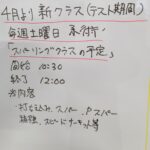 4月より新クラス(テスト期間)
毎週土曜日
「スパーリングクラスの予定」
開始 10:30
終了 12:00
※内容
・打ち込み、スパー、P スパー
補強、スピードサーキット等